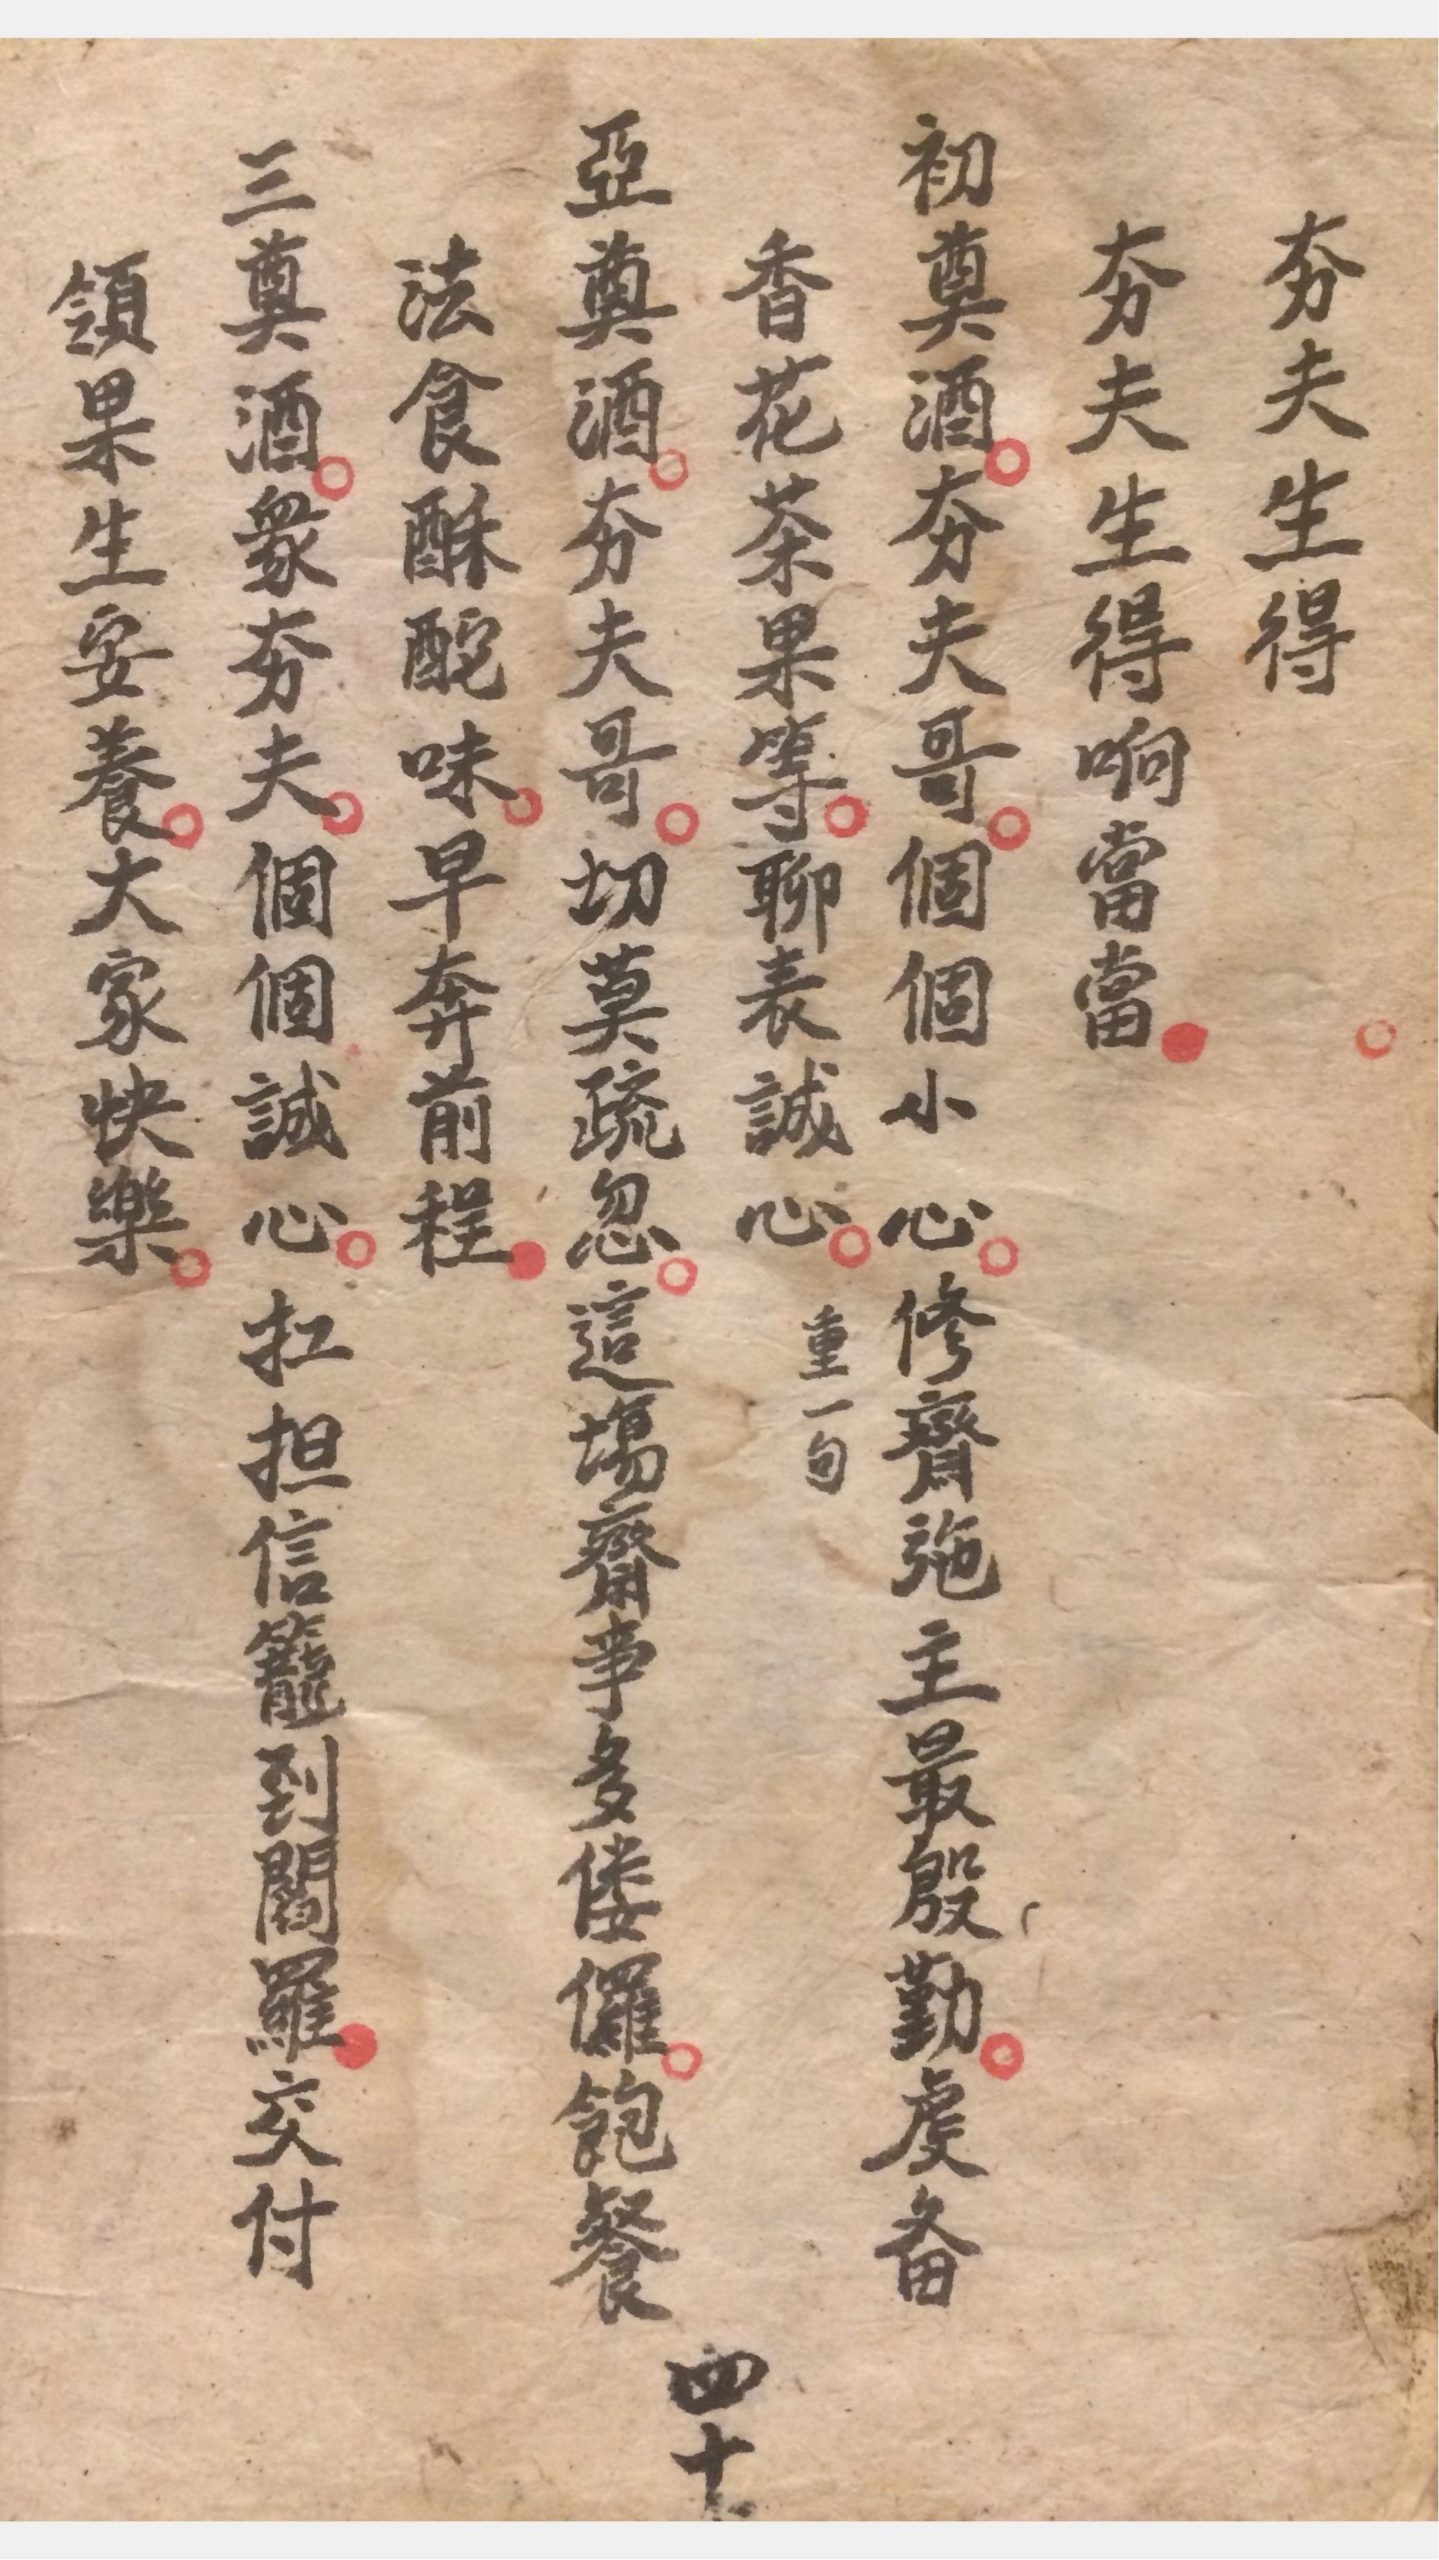 夯夫生得
夯夫生得响當當
初奠酒夯夫哥個個小心修齊施主最殷勤虔畨
香花茶果等聊表誠心
重一句
亞奠酒夯夫哥切莫疏忽這場齋事多偻儸飽餐
法食酥酡味早奔前程
三奠酒衆夯夫個個誠心扛担信籠到閻羅交付
領果生安養大家快樂
四十